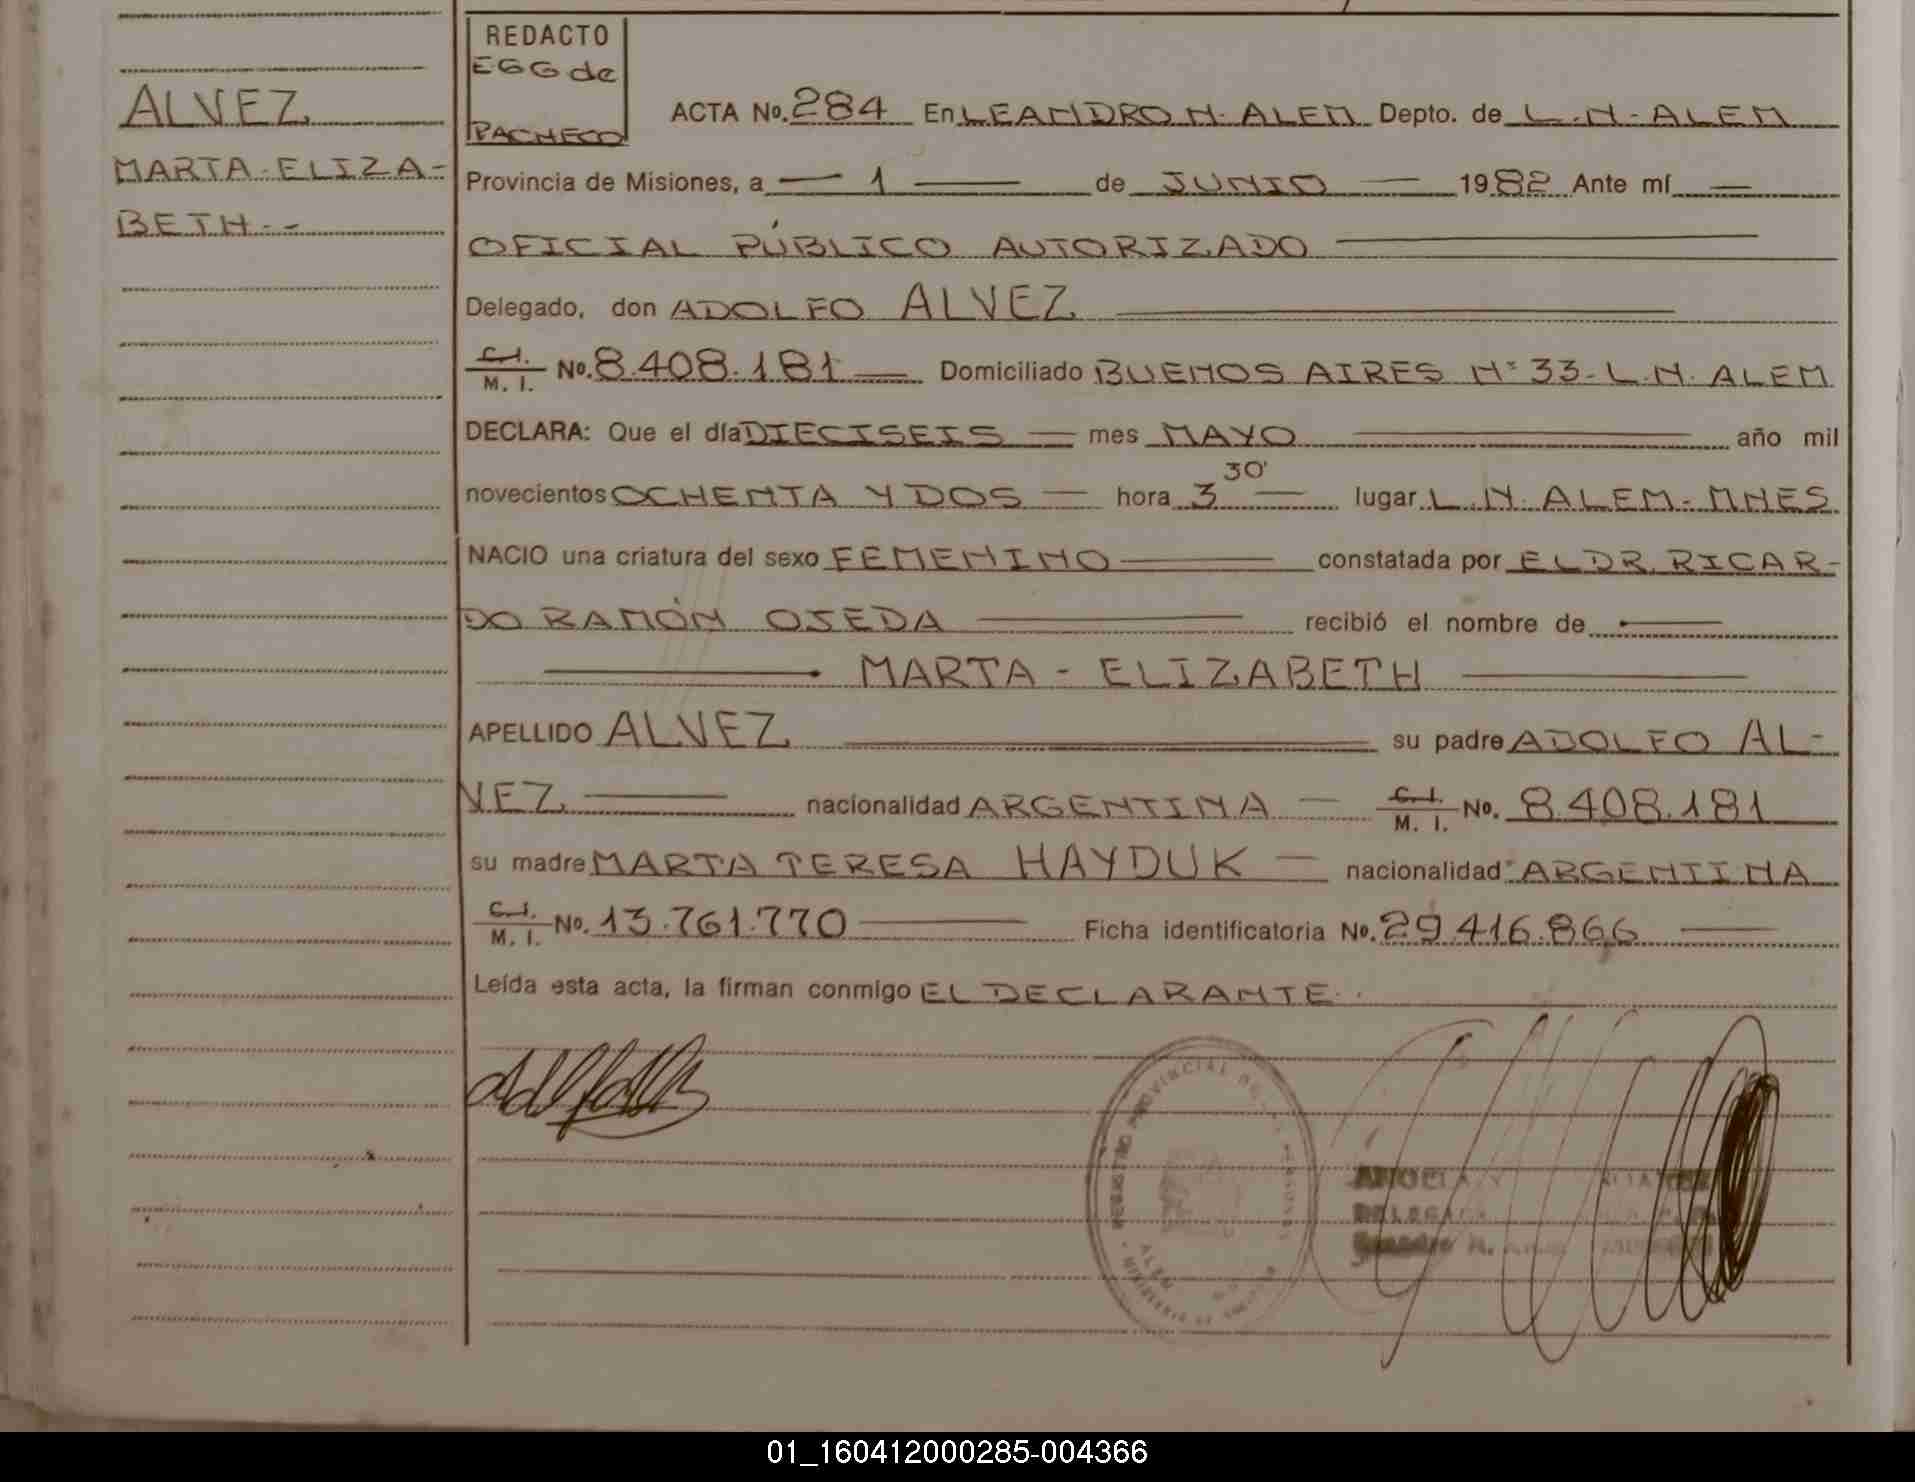 REDACTO
EGG de
PACHECO
ALVEZ
MARTA-ELIZA-
BETH.-
ACTA No. 284 En LEANDRO N. ALEM Depto. de L.N.-ALEM
Provincia de Misiones, a — 1 — de JUNIO — 1982 Ante mí —
OFICIAL PÚBLICO AUTORIZADO —
Delegado, don ADOLFO ALVEZ —
C.I. / M. I. No. 8.408.181 — Domiciliado BUENOS AIRES N° 33-L.N. ALEM
DECLARA: Que el día DIECISEIS — mes MAYO — año mil
novecientos OCHENTA Y DOS — hora 3 30' — lugar L.N. ALEM-MNES
NACIO una criatura del sexo FEMENINO — constatada por EL DR. RICAR-
DO RAMÓN OJEDA — recibió el nombre de —
— MARTA - ELIZABETH —
APELLIDO ALVEZ — su padre ADOLFO AL-
VEZ — nacionalidad ARGENTINA — C.I. / M. I. No. 8.408.181
su madre MARTA TERESA HAYDUK — nacionalidad ARGENTINA
C.I. / M. I. No. 13.761.770 — Ficha identificatoria No. 29.416.866 —
Leída esta acta, la firman conmigo EL DECLARANTE.
REGISTRO PROVINCIAL DE LAS PERSONAS
ALEM
01_160412000285-004366